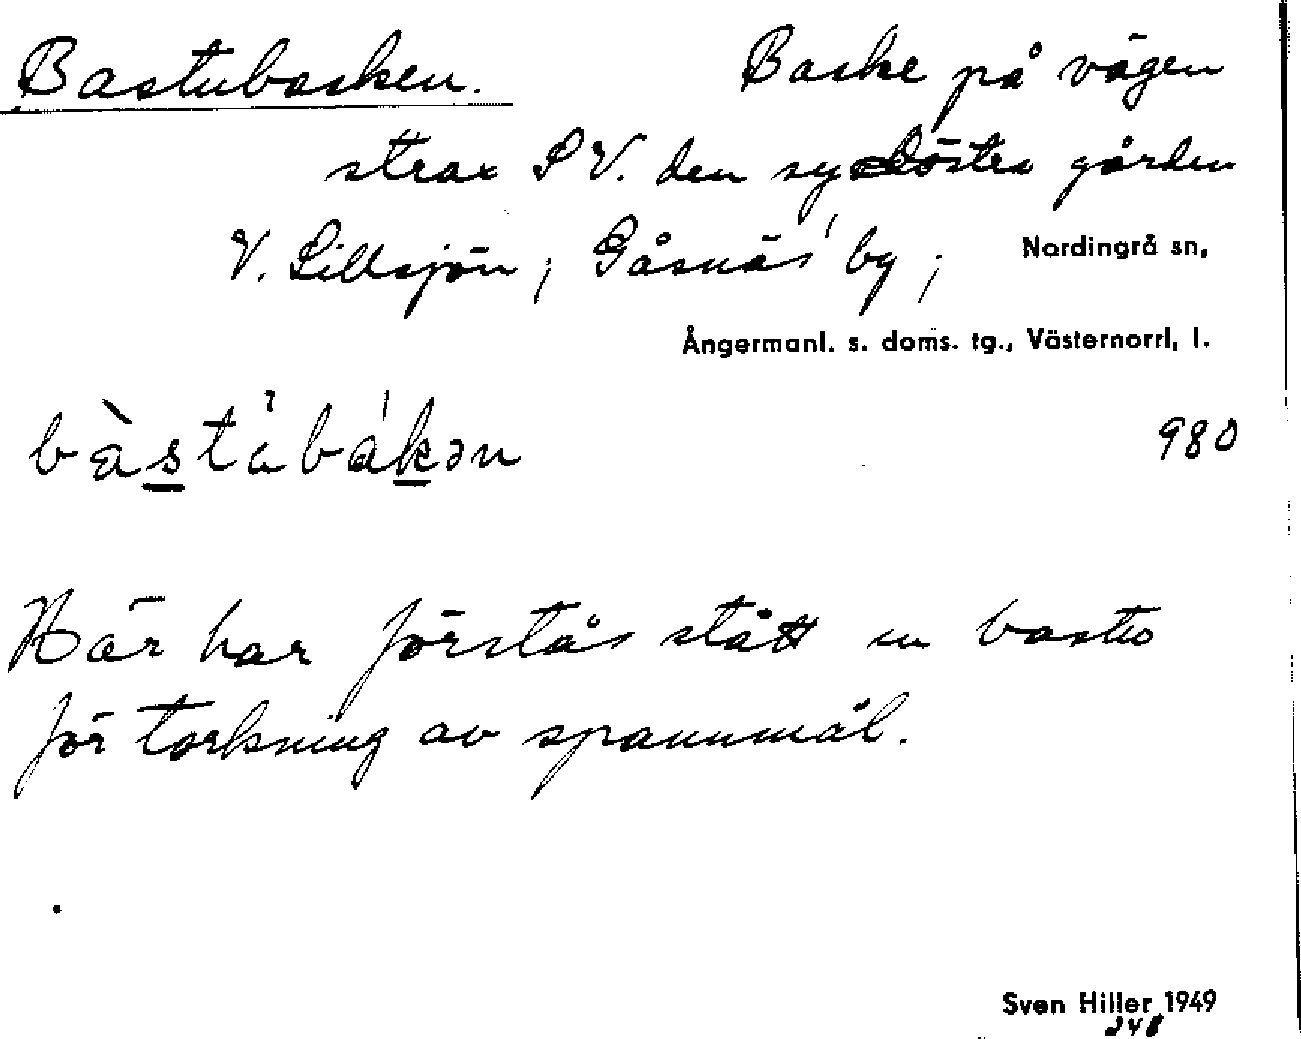 Bastubacken. Backe på vägen
strax SV. den sydöstra gården
V. Lillsjön, Gåsnäs by, Nordingrå sn,
Ångermanl. s. doms. tg., Västernorrl. l.
bàstábákən 980
Här har förstås stått en bastu
för torkning av spannmål.
Sven Hiller 1949